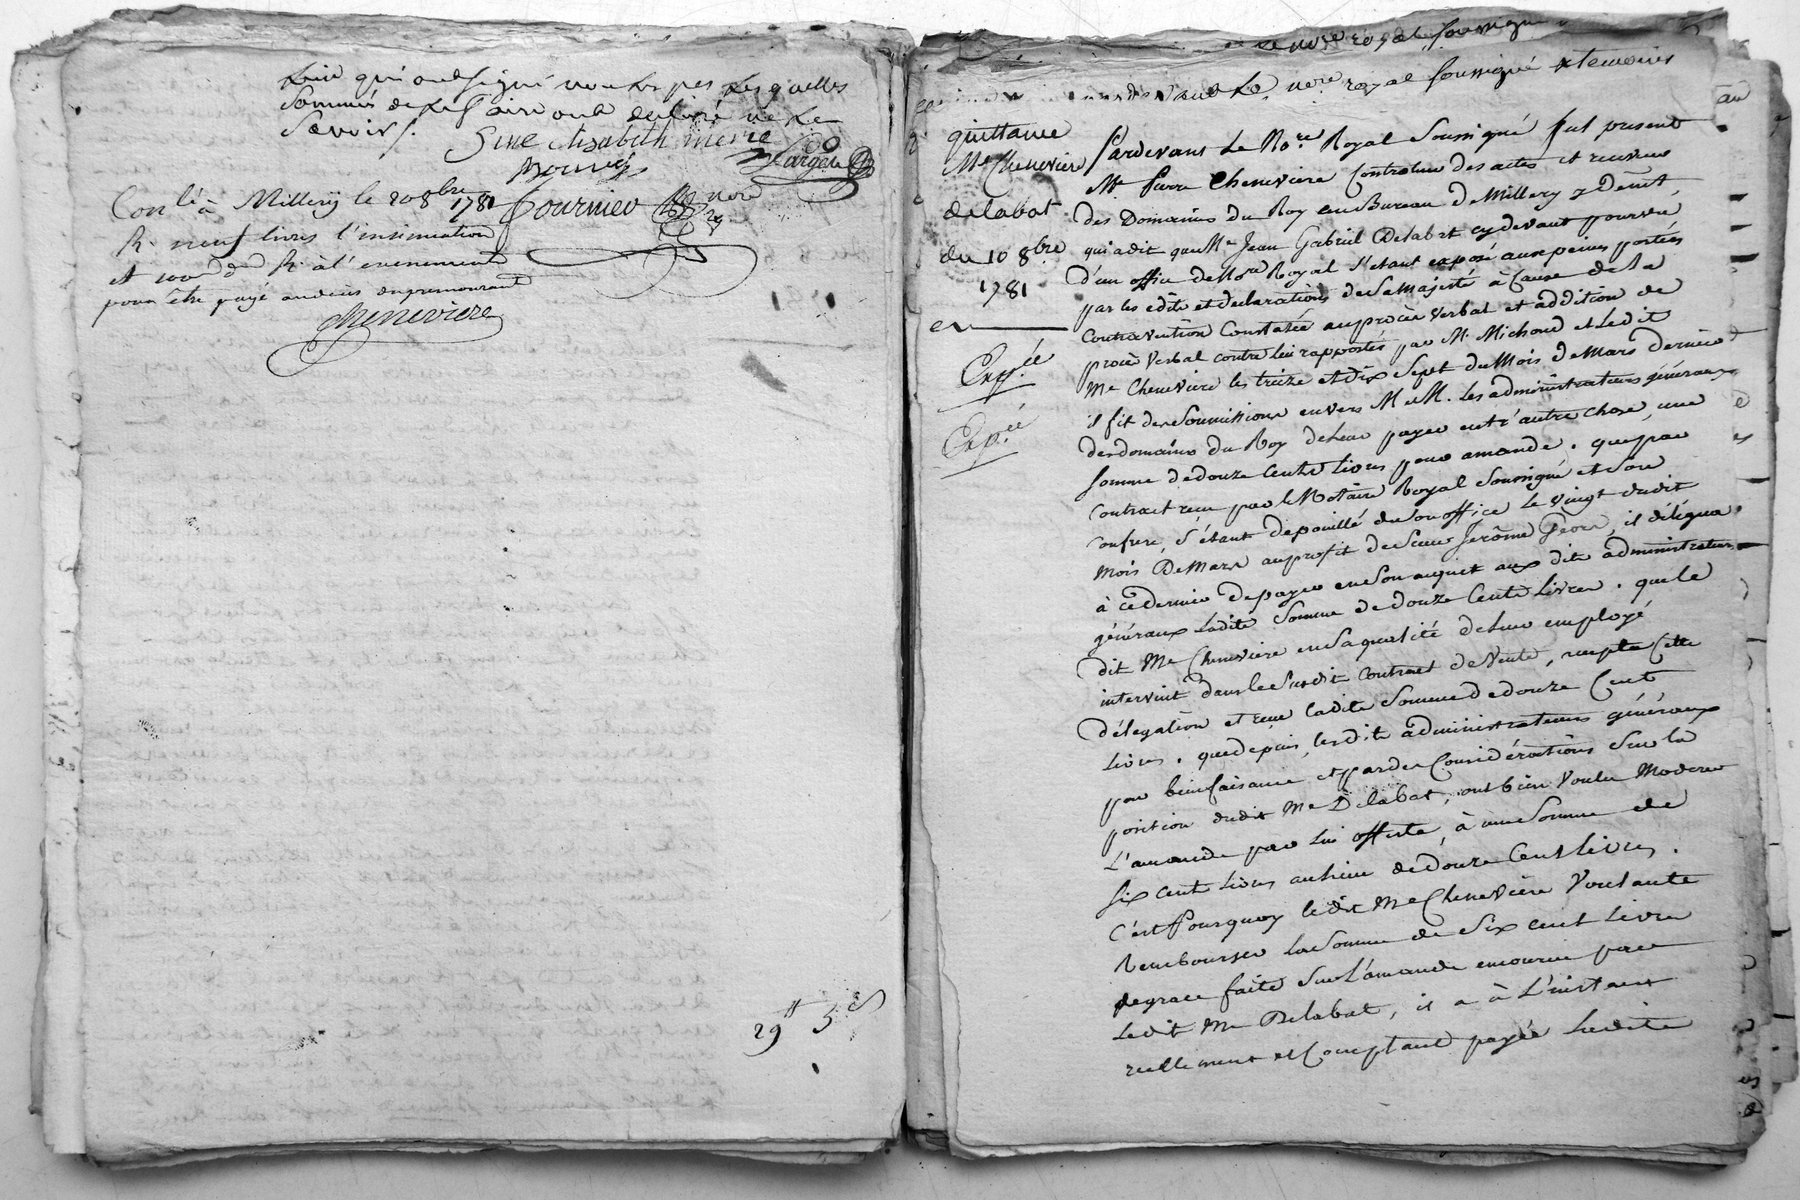 Luin qui ont signé non les
Sommés de
Savoir /.
Sine Elisabeth mesre
Largere
Fournier nore
Conlé à Millery le 20 8bre 1781
R. neuf livres l'insinuation
et R. à l'evenement
pour être payé
Chenevière
29tt 5s
Nore royal soussigné
pardevant Le nore royal soussigné & temoins
quittance
Mre Chenevière
delabat
du 10 8bre
1781
Expée
Expée
Pardevant Le Nore Royal Soussigné fut present
Me Pierre Cheneviere Controleur des actes et receveur
des Domaines du Roy au Bureau de Millery y demt.
qui a dit que Me Jean Gabriel Delabat cy devant pourvu
d'un office de Nore Royal s'etant exposé aux peines portées
par les edits et declarations de Sa Majesté à Cause de la
Contravention Constatée au procès verbal et addition de
procès verbal contre lui rapportés par Me Michoud et Ledit
Me Cheneviere les treize et dix Sept du Mois de Mars dernier
il fit des Soumissions envers M et M. Les administrateurs généraux
des domaines du Roy de leur payer entr'autre chose, une
somme de douze Cents livres pour amande. que par
Contract reçu par le Notaire Royal Soussigné et Son
Confrere, s'étant depouillé de son office Le vingt dudit
mois De Mars au profit de Sieur Jerôme, il délégua
à ce dernier de payer en Son acquet aux dits administrateurs
généraux Ladite Somme de douze Cents Livres. que le
dit Me Cheneviere en Sa qualité de leur employé
intervint dans le Susdit Contract de Vente, accepta Cette
délégation et reçu Ladite Somme de douze Cent
Livres. que depuis, lesdits administrateurs généraux
par bienfaisance et par des Considérations Sur la
position dudit Me Delabat, ont bien Voulu Moderer
L'amande par lui offerte, à une Somme de
Six cent Livres au lieu de douze Cent Livres.
C'est Pourquoy ledit Me Chenevière Voulant
Rembourser la Somme de Six cent Livres
de grace faite Sur L'amande encourue par
Ledit Me Delabat, il a à L'instant
reellement et Comptant payée Ladite